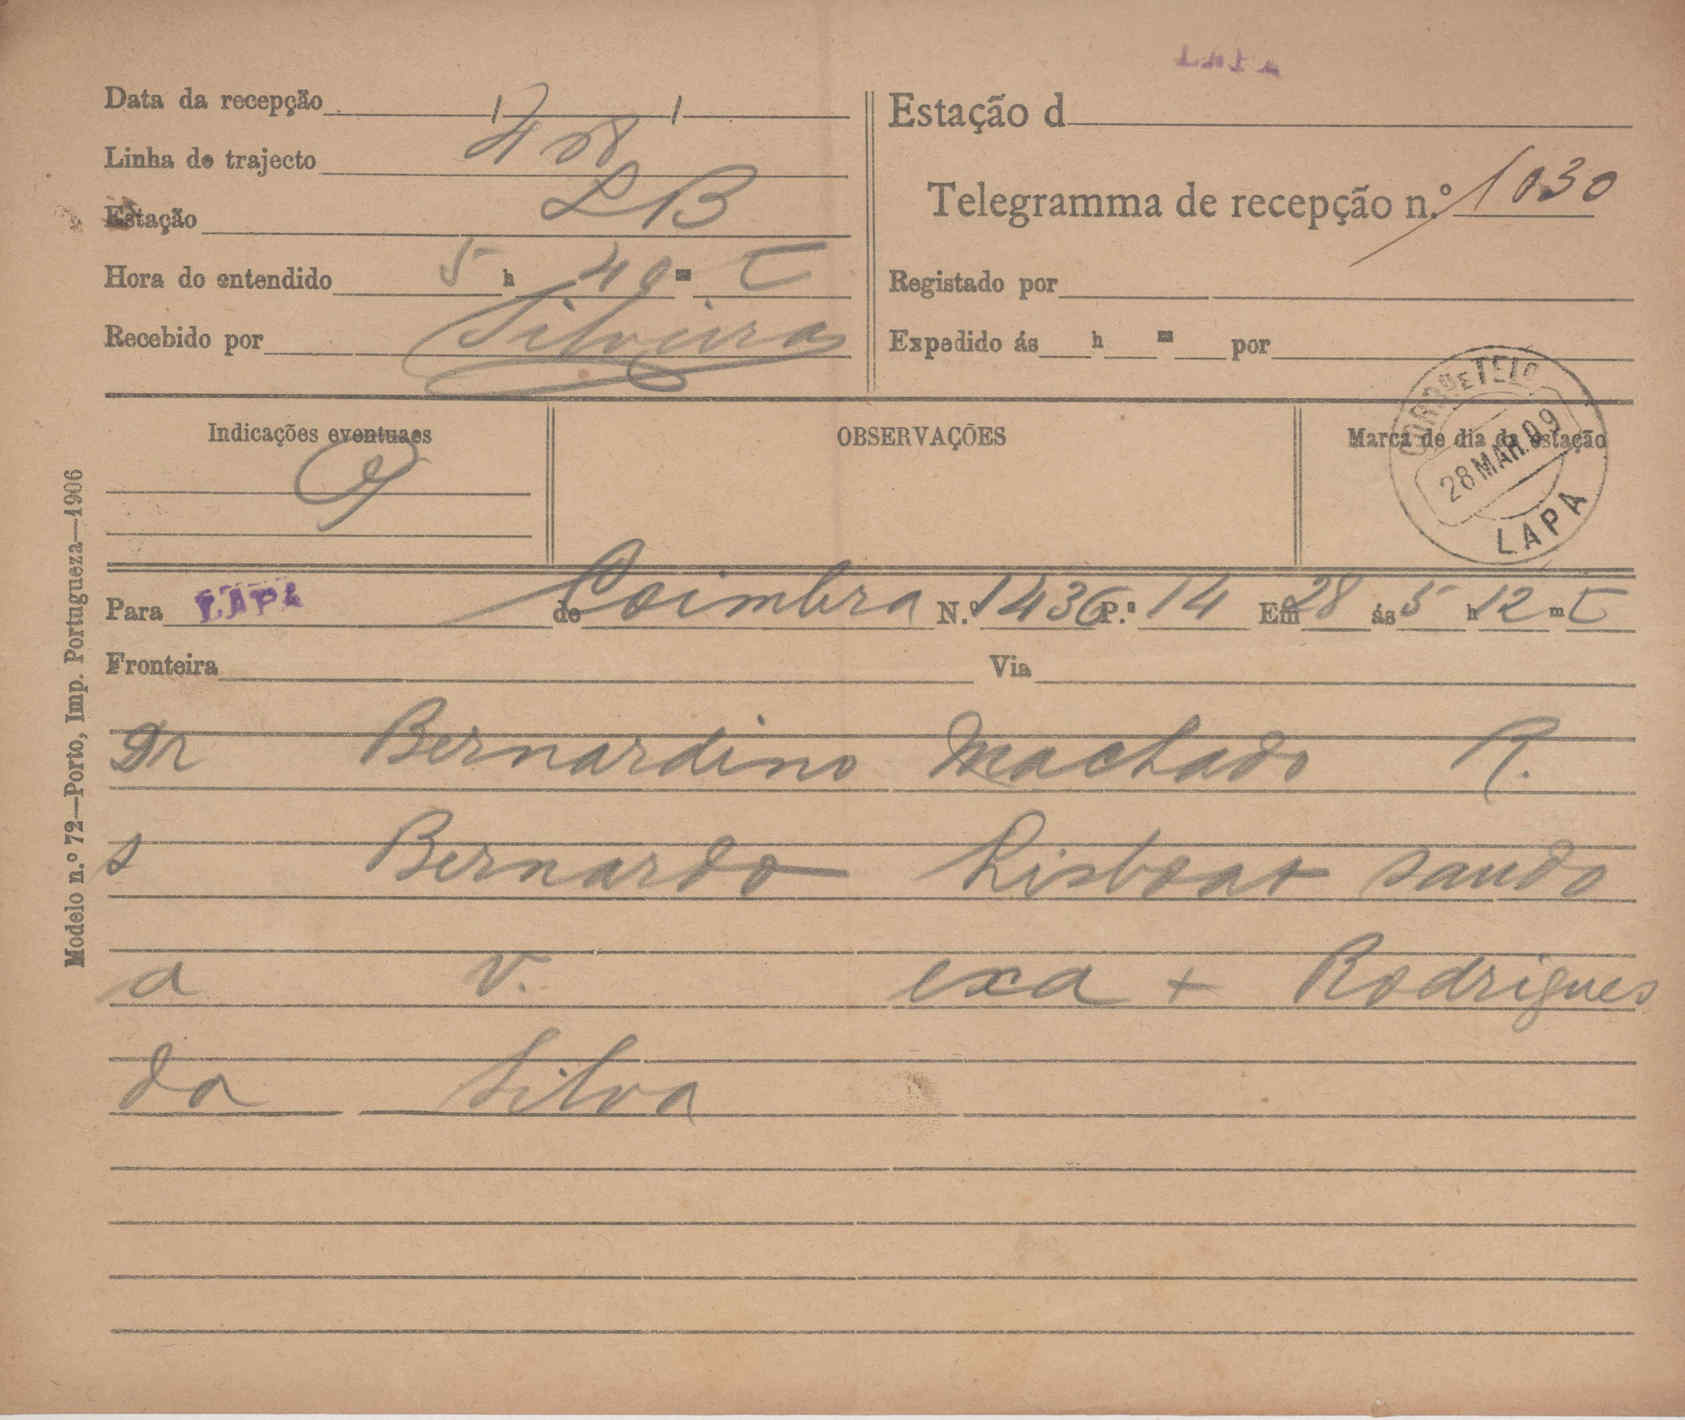 LAPA
Data da recepção / /
Estação d
Linha de trajecto
Telegramma de recepção n.º 1030
Estação LB
Hora do entendido 5 h 40 m t
Registado por
Recebido por Silveira
Expedido ás h m por
Indicações eventuaes
OBSERVAÇÕES
Marca de dia da estação
CORRO E TELO
28 MAR. 09
LAPA
Para LAPA de Coimbra N.º 1436 P.ª 14 Em 28 ás 5 h 12 m t
Fronteira Via
Dr Bernardino Machado R.
s Bernardo Lisboa + saudo
a v. exa + Rodrigues
da Silva
Modelo n.º 72—Porto, Imp. Portugueza—1906